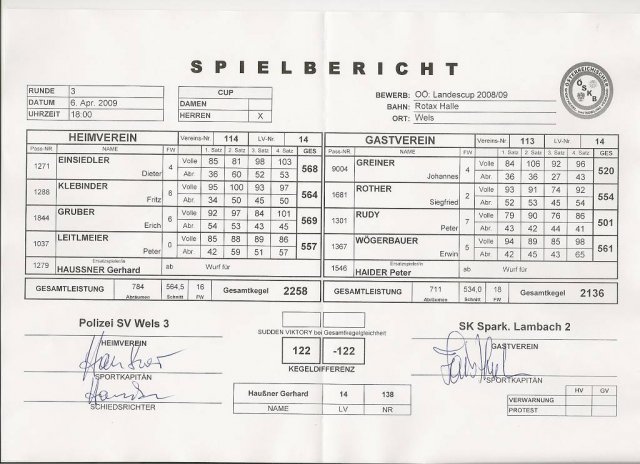 SPIELBERICHT
ÖSTERREICHISCHER
ÖSKB
RUNDE 3
DATUM 6. Apr. 2009
UHRZEIT 18:00
CUP
DAMEN
HERREN X
BEWERB: OÖ: Landescup 2008/09
BAHN: Rotax Halle
ORT: Wels
HEIMVEREIN Vereins-Nr 114 LV-Nr. 14
Pass-NR NAME FW 1. Satz 2. Satz 3. Satz 4. Satz GES
1271 EINSIEDLER Dieter 4 Volle 85 81 98 103 568
Abr. 36 60 52 53
1288 KLEBINDER Fritz 6 Volle 95 100 93 97 564
Abr. 34 50 45 50
1844 GRUBER Erich 6 Volle 92 97 84 101 569
Abr. 54 53 43 45
1037 LEITLMEIER Peter 0 Volle 85 88 89 86 557
Abr. 42 59 51 57
Ersatzspieler/in
1279 HAUSSNER Gerhard ab Wurf für
GESAMTLEISTUNG 784 Abräumen 564,5 Schnitt 16 FW Gesamtkegel 2258
GASTVEREIN Vereins-Nr. 113 LV-Nr. 14
Pass-NR NAME FW 1. Satz 2. Satz 3. Satz 4. Satz GES
9004 GREINER Johannes 4 Volle 84 106 92 96 520
Abr. 36 36 27 43
1681 ROTHER Siegfried 2 Volle 93 91 74 92 554
Abr. 53 52 45 54
1301 RUDY Peter 7 Volle 79 90 76 86 501
Abr. 43 42 44 41
1367 WÖGERBAUER Erwin 5 Volle 94 89 85 98 561
Abr. 42 45 43 65
Ersatzspieler/in
1546 HAIDER Peter ab Wurf für
GESAMTLEISTUNG 711 Abräumen 534,0 Schnitt 18 FW Gesamtkegel 2136
Polizei SV Wels 3
HEIMVEREIN
SPORTKAPITÄN
SCHIEDSRICHTER
SUDDEN VIKTORY bei Gesamtkegelgleichheit
122 -122
KEGELDIFFERENZ
Haußner Gerhard 14 138
NAME LV NR
SK Spark. Lambach 2
GASTVEREIN
SPORTKAPITÄN
HV GV
VERWARNUNG
PROTEST